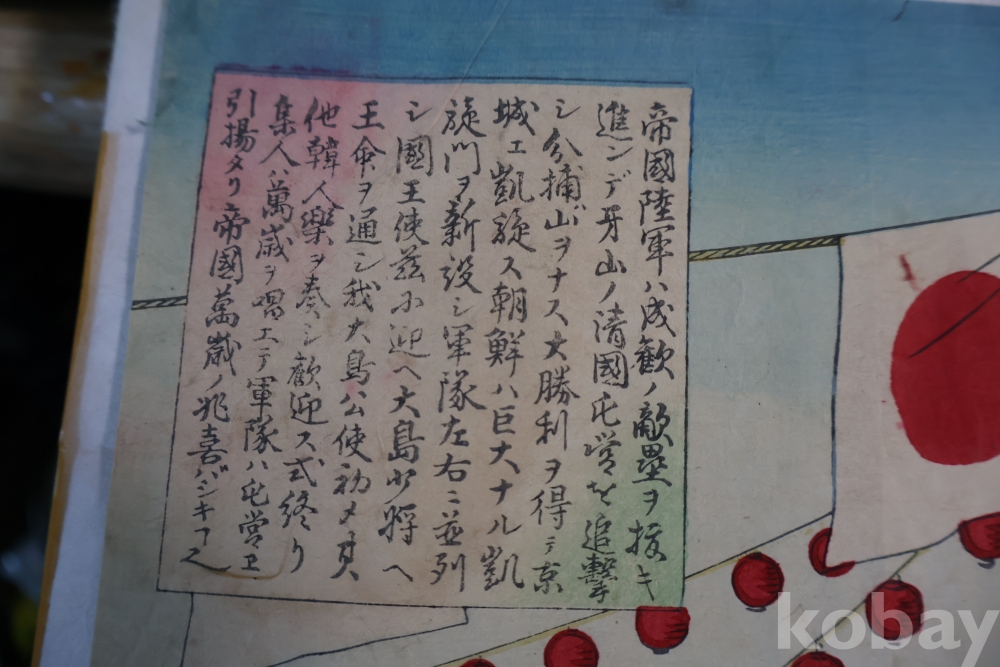 帝國陸軍ハ成歡ノ敵塁ヲ抜キ
進ンデ牙山ノ清國屯営を追撃
シ分捕ガヲナス大勝利ヲ得テ京
城エ凱旋ス朝鮮ハ巨大ナル凱
旋門ヲ新設シ軍隊左右ニ並列
シ國王使茲ニ迎ヘ大島少将ヘ
王命ヲ通シ我大島公使初メ其
他韓人樂ヲ奏シ歡迎ス式終リ
集人ハ萬歳ヲ唱エテ軍隊ハ屯営エ
引揚タリ帝國萬歳ノ兆喜バシキ
kobay